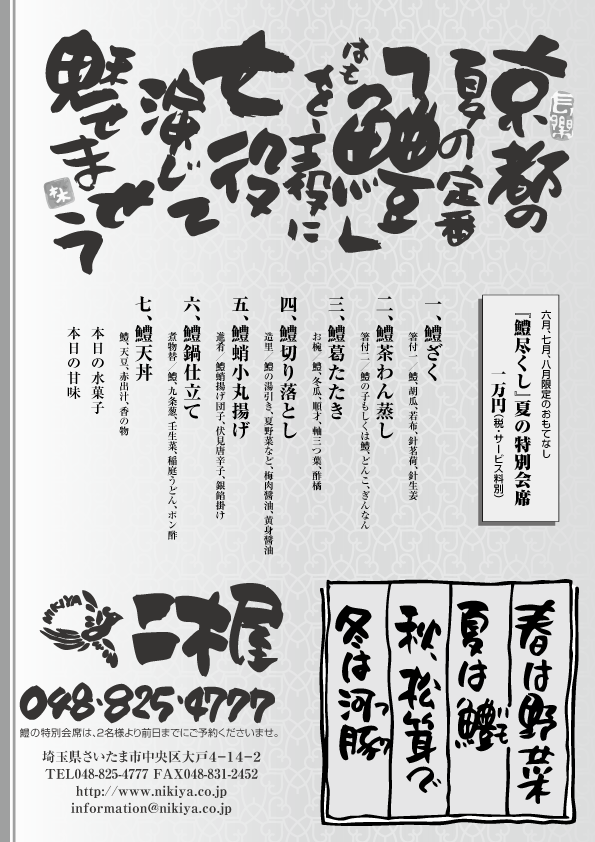 京都の
夏の定番
鱧尽くし
はも
を主役に
七役
演じて
魅せま
せう
長樂
六月、七月、八月限定のおもてなし
『鱧尽くし』夏の特別会席
一万円(税・サービス料別)
一、鱧ざく
箸付一/鱧、胡瓜、若布、針茗荷、針生姜
二、鱧茶わん蒸し
箸付二/鱧の子もしくは鱧、どんこ、ぎんなん
三、鱧葛たたき
お椀/鱧、冬瓜、順才、軸三つ葉、酢橘
四、鱧切り落とし
造里/鱧の湯引き、夏野菜など、梅肉醤油、黄身醤油
五、鱧蛸小丸揚げ
進肴/鱧蛸揚げ団子、伏見唐辛子、銀餡掛け
六、鱧鍋仕立て
煮物替/鱧、九条葱、壬生菜、稲庭うどん、ポン酢
七、鱧天丼
鱧、天豆、赤出汁、香の物
本日の水菓子
本日の甘味
春は野菜
夏は鱧
秋、松茸で
冬は河豚
NIKIYA
二木屋
048・825・4777
鱧の特別会席は、2名様より前日までにご予約くださいませ。
埼玉県さいたま市中央区大戸4−14−2
TEL048-825-4777 FAX048-831-2452
http://www.nikiya.co.jp
information@nikiya.co.jp